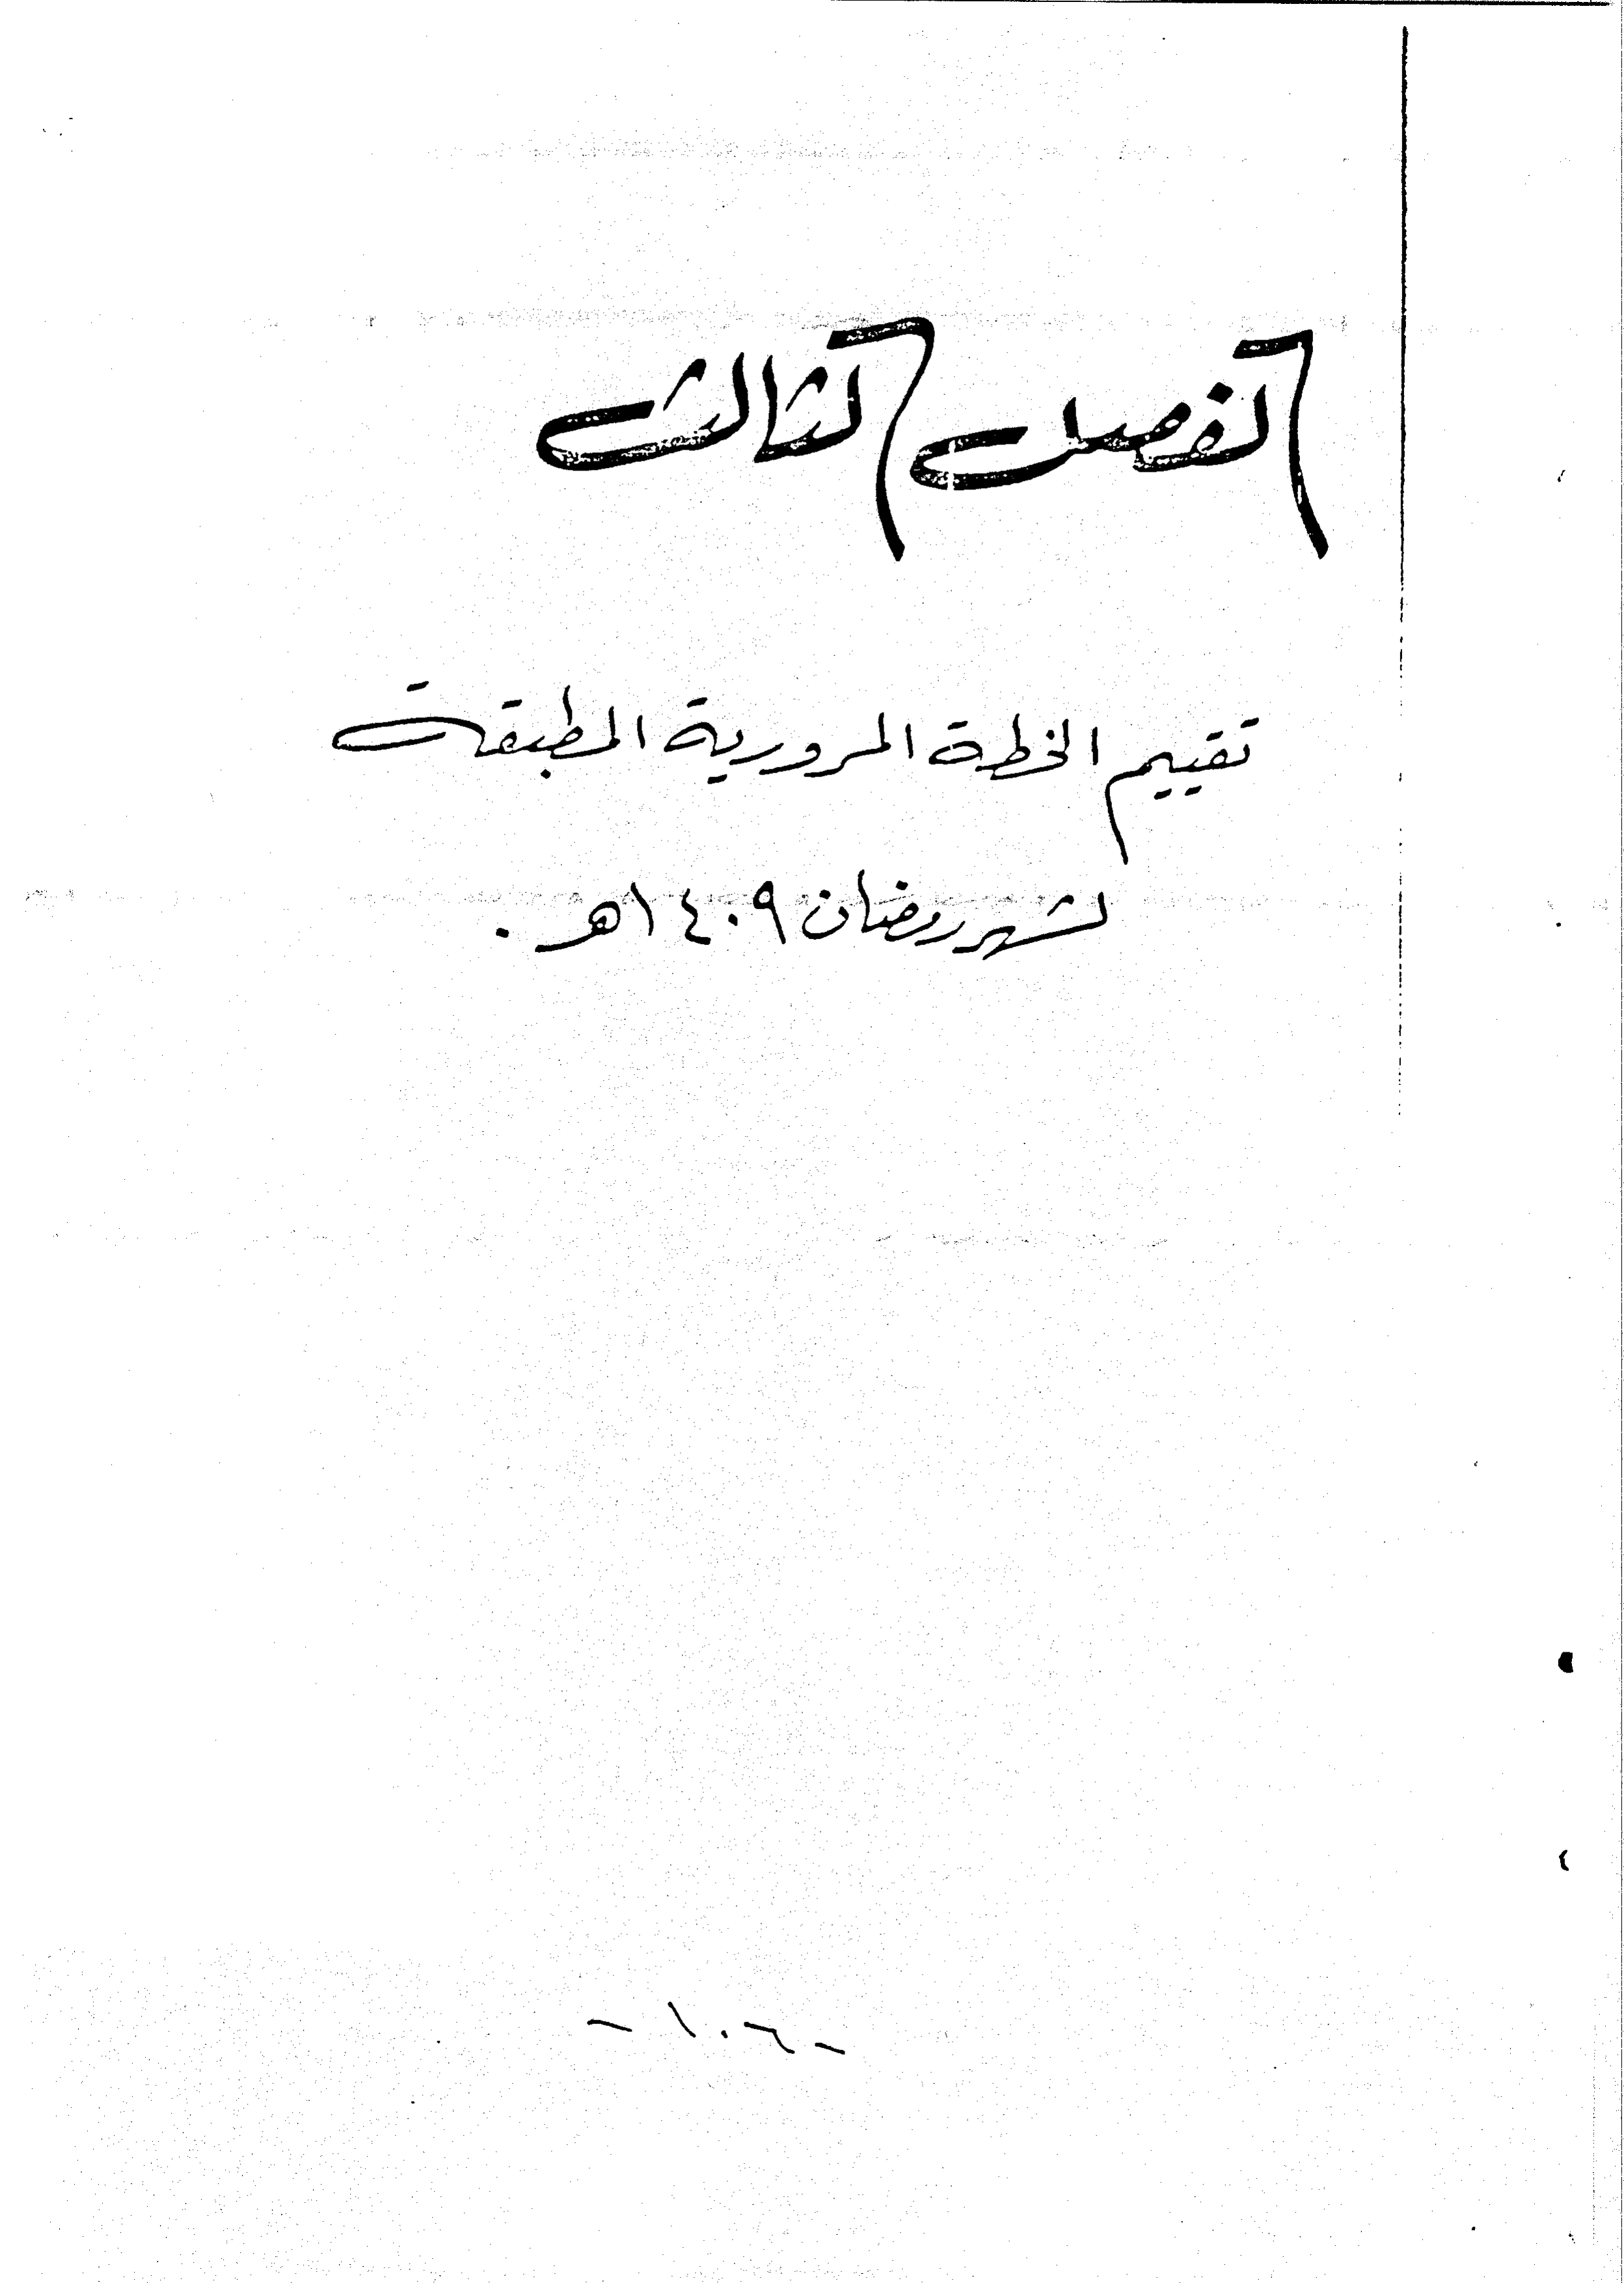 الفصل الثالث
تقييم الخطة المرورية المطبقة
لشهر رمضان ١٤٠٩هـ .
- ١٠٦ -